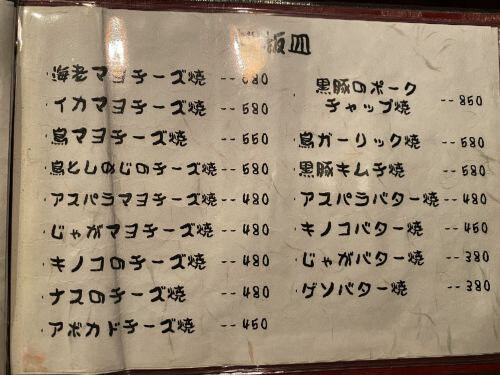 板皿
・海老マヨチーズ焼
・イカマヨチーズ焼 --580
・鳥マヨチーズ焼 --550
・鳥としめじのチーズ焼 --580
・アスパラマヨチーズ焼 --480
・じゃがマヨチーズ焼 --480
・キノコのチーズ焼 --480
・ナスのチーズ焼 --480
・アボカドチーズ焼 --450
・黒豚のポーク
チャップ焼 --850
・鳥ガーリック焼 --580
・黒豚キムチ焼 --580
・アスパラバター焼 --480
・キノコバター焼 --450
・じゃがバター焼 --380
・ゲソバター焼 --380